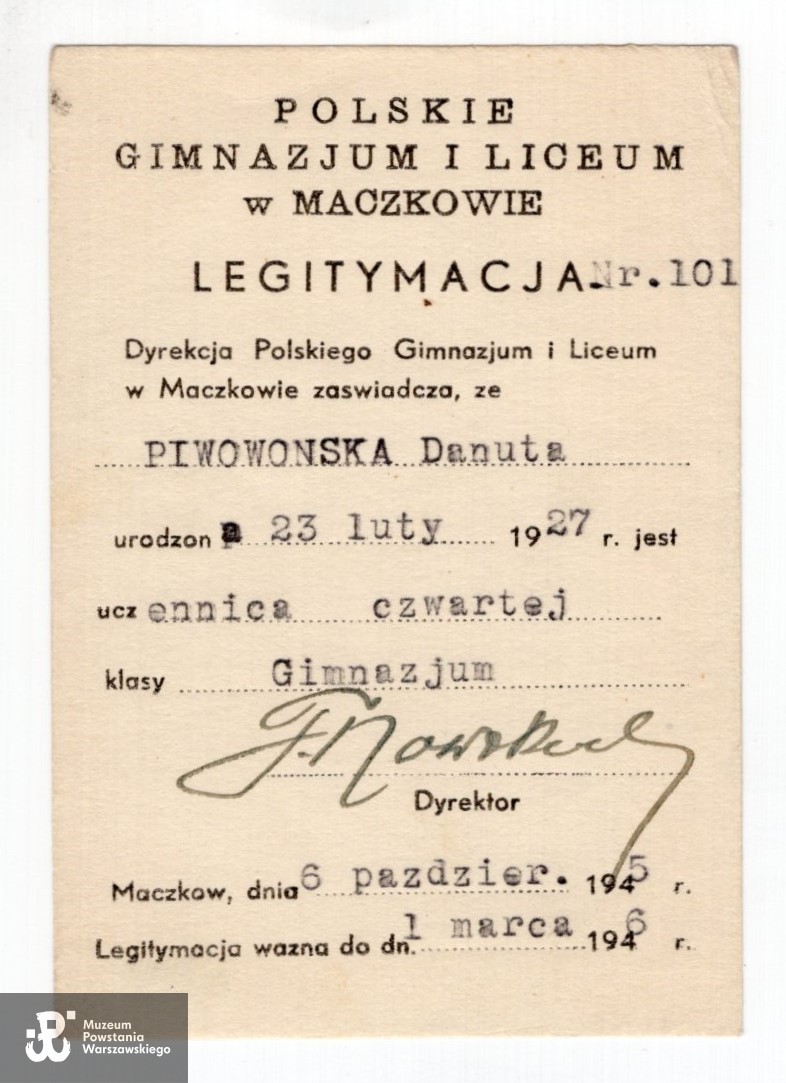 POLSKIE
GIMNAZJUM I LICEUM
w MACZKOWIE
LEGITYMACJA Nr.101
Dyrekcja Polskiego Gimnazjum i Liceum
w Maczkowie zaswiadcza, ze
PIWOWONSKA Danuta
urodzona 23 luty 1927 r. jest
uczennica czwartej
klasy Gimnazjum
Dyrektor
Maczkow, dnia 6 pazdzier. 1945 r.
Legitymacja wazna do dn. 1 marca 1946 r.
Muzeum
Powstania
Warszawskiego